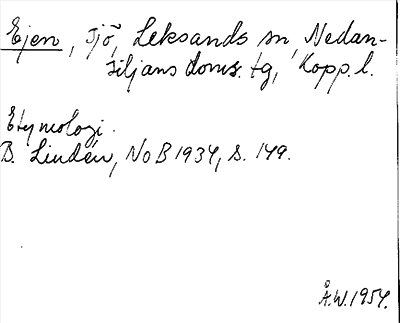 Ejen, sjö, Leksands sn, Nedan-
siljans doms. tg, Kopp. l.
Etymologi.
B. Lindén, NoB 1934, s. 149.
Å.W. 1954.